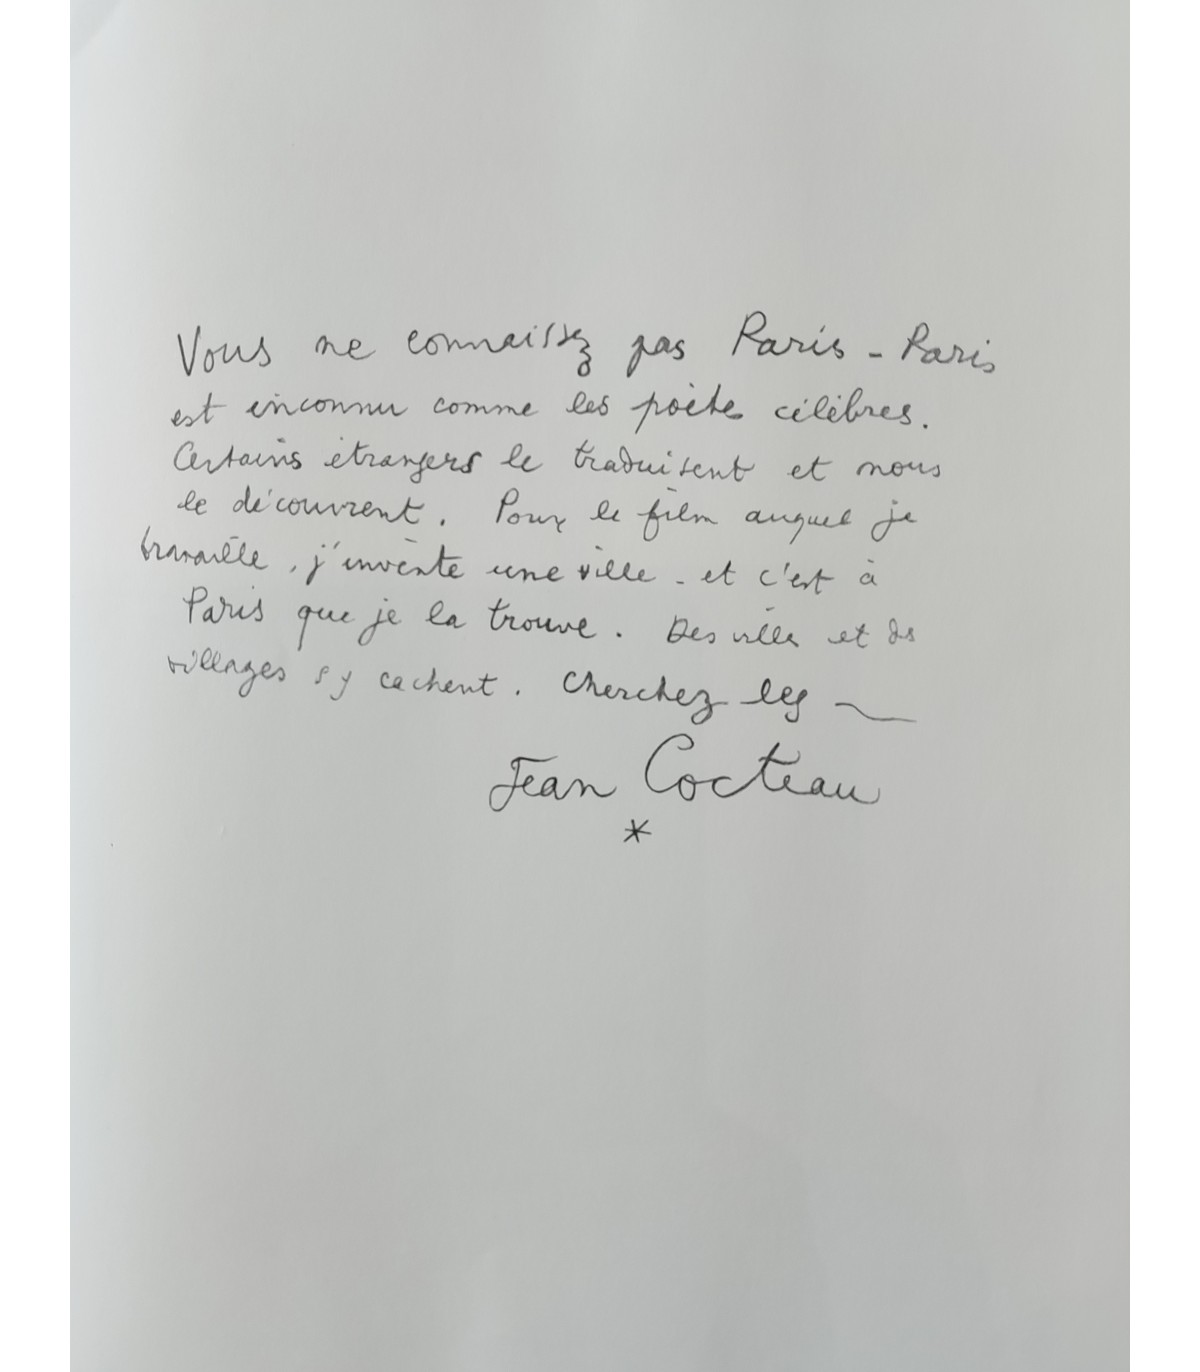 Vous ne connaissez pas Paris - Paris
est inconnu comme les poètes célèbres.
Certains étrangers le traduisent et nous
le découvrent. Pour le film auquel je
travaille, j'invente une ville - et c'est à
Paris que je la trouve. Des villes et des
villages s'y cachent. Cherchez les
Jean Cocteau
*